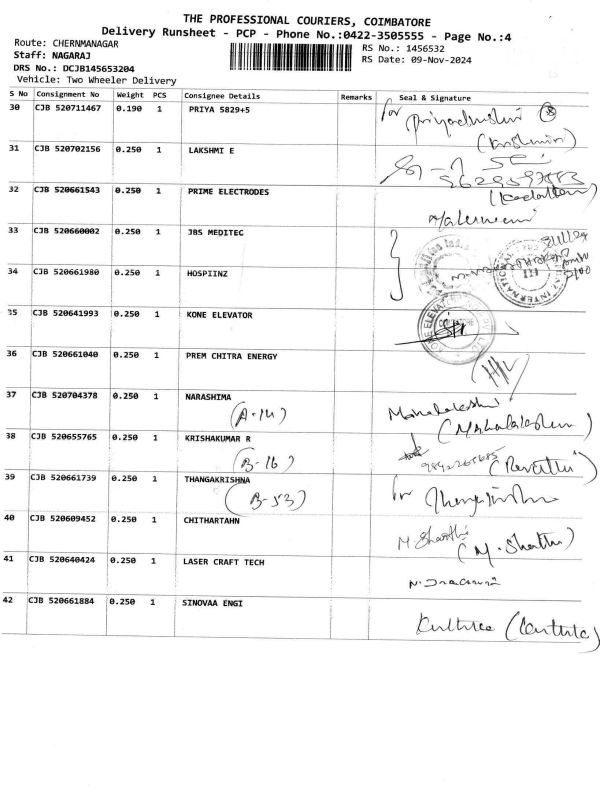 THE PROFESSIONAL COURIERS, COIMBATORE
Delivery Runsheet - PCP - Phone No.:0422-3505555 - Page No.:4
Route: CHERNMANAGAR
RS No.: 1456532
Staff: NAGARAJ
RS Date: 09-Nov-2024
DRS No.: DCJB145653204
Vehicle: Two Wheeler Delivery
S No Consignment No Weight PCS Consignee Details Remarks Seal & Signature
30 CJB 520711467 0.190 1 PRIYA 5829+5
31 CJB 520702156 0.250 1 LAKSHMI E
32 CJB 520661543 0.250 1 PRIME ELECTRODES
33 CJB 520660002 0.250 1 JBS MEDITEC
34 CJB 520661980 0.250 1 HOSPIINZ
35 CJB 520641993 0.250 1 KONE ELEVATOR
36 CJB 520661040 0.250 1 PREM CHITRA ENERGY
37 CJB 520704378 0.250 1 NARASHIMA
(A-14)
38 CJB 520655765 0.250 1 KRISHAKUMAR R
(B-16) (Revathi)
39 CJB 520661739 0.250 1 THANGAKRISHNA
(B-53) for
40 CJB 520609452 0.250 1 CHITHARTAHN
(M. Shanthi)
41 CJB 520640424 0.250 1 LASER CRAFT TECH
42 CJB 520661884 0.250 1 SINOVAA ENGI